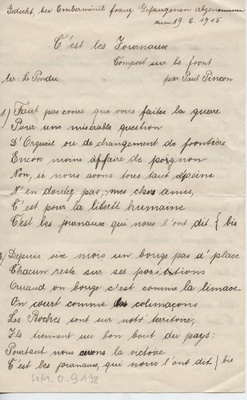 Gedicht, bei Emberménil franz. Gefangenen abgenommen
am 19.6.1915
C'est les Journaux
Composé sur le front
Air: le Pendu par Paul Pinçon
1) Faut pas croire que vous faites la guerre
Pour une misérable question
D'Orgueil ou de changement de frontière
Encore moins affaire de pognon
Non, si nous avons tous tant de peine
N'en doutez pas, mes chers amis,
C'est pour la liberté humaine
C'est les journaux qui nous l'ont dit { bis
2) Depuis six mois on bouge pas d'place
Chacun reste sur ses positions
Quand on bouge c'est comme la limace
On court comme des colimaçons
Les Boches sont sur nott' territoire,
Ils tiennent un bon bout du pays:
Pourtant nous avons la victoire
C'est les journaux, qui nous l'ont dit } bis
HM 0-9198